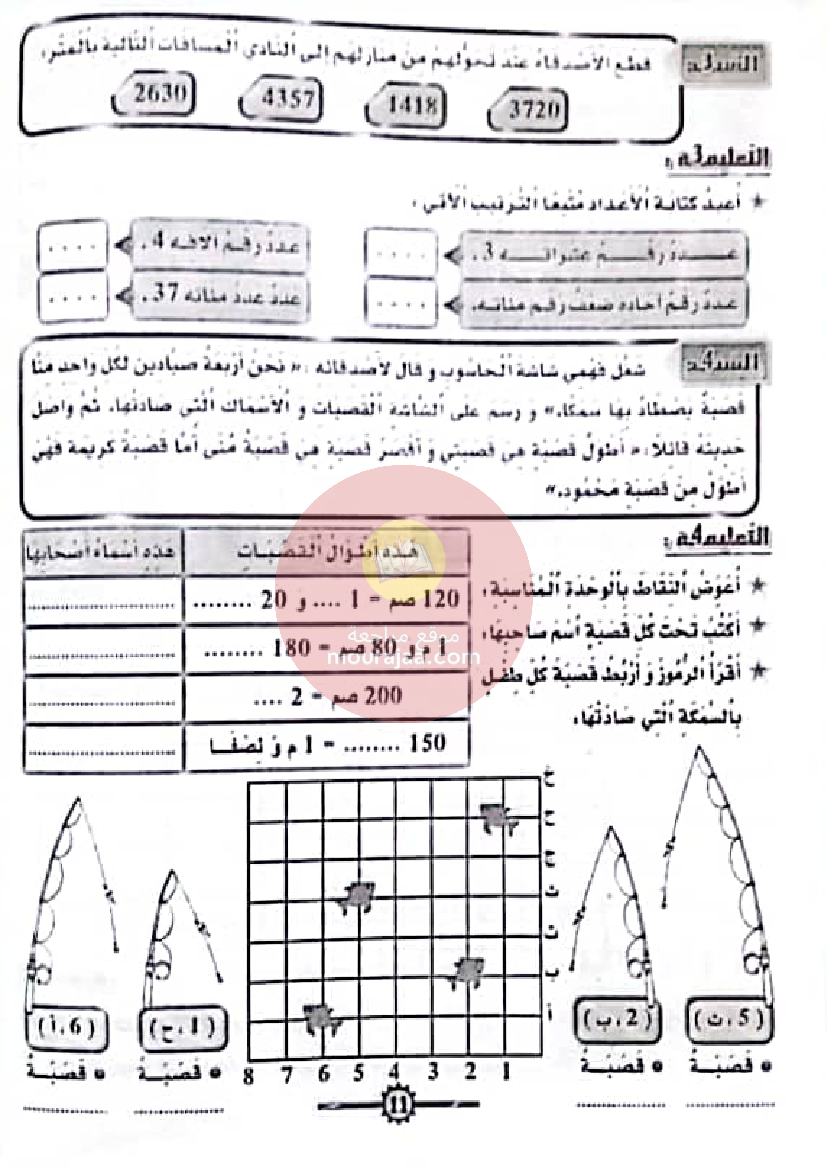 السند3 قطع الأصدقاء عند تحولهم من منازلهم إلى النادي المسافات التالية بالمتر:
3720 1418 4357 2630
التعليمة3 :
★ أعيد كتابة الأعداد متبعا الترتيب الآتي :
عدد رقم عشراته 3. .... عدد رقم آلافه 4. ....
عدد رقم آحاده ضعف رقم مئاته. .... عدد عدد مئاته 37. ....
السند4 شغل فهمي شاشة الحاسوب و قال لأصدقائه : « نحن أربعة صيادين لكل واحد منا
قصبة يصطاد بها سمكا.» و رسم على الشاشة القصبات و الأسماك التي صادتها. ثم واصل
حديثه قائلا : « أطول قصبة هي قصبتي و أقصر قصبة هي قصبة منى أما قصبة كريمة فهي
أطول من قصبة محمود.»
التعليمة4 :
★ أعوض النقاط بالوحدة المناسبة :
★ أكتب تحت كل قصبة اسم صاحبها :
★ أقرأ الرموز و أربط قصبة كل طفل
بالسمكة التي صادتها :
هذه أطوال القصبات هذه أسماء أصحابها
120 صم = 1 .... و 20 ........ ....................
1 م و 80 صم = 180 ........ ....................
200 صم = 2 .... ....................
150 ........ = 1 م و نصفا ....................
موقع مراجعة
mourajaa.com
خ
ح
ج
ث
ت
ب
أ
1 2 3 4 5 6 7 8
(5،ث) (2،ب) (1،ح) (6،أ)
• قصبة • قصبة • قصبة • قصبة
.................... .................... .................... ....................
11